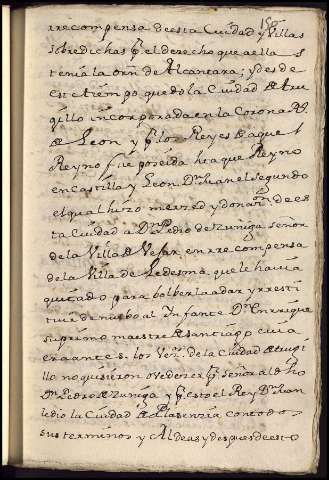 rrecompensa de esta Ciudad y Villas
sobredichas pr el derecho que a ella s
tenia la orñ de Alcantara; y desde
este tiempo quedo la Ciudad de tru
gillo incorporada en la Corona Rl
de Leon y pr los Reyes de aquel
Reyno fue poseida Reyno
en Castilla y Leon Dn Juan el segundo
el qual hizo merzed y donaon de es
ta Ciudad a Dn Pedro de Zuñiga señor
de la Villa de Vejar en rrecompensa
de la Villa de Ledesma, que le havia
quitado para bolberla a dar y rresti
tuir de nuebo al Infante Dn Enrrique
su primo maestre de Santiago cuia
era antes. los Vezs de la Ciudad de trugi
llo no quisieron ovedezer pr señor al dho
Dn Pedro de Zuñiga y pr esto el Rey Dn Juan
le dio la Ciudad de Plasenzia con todos
sus terminos y Aldeas y despues de esto